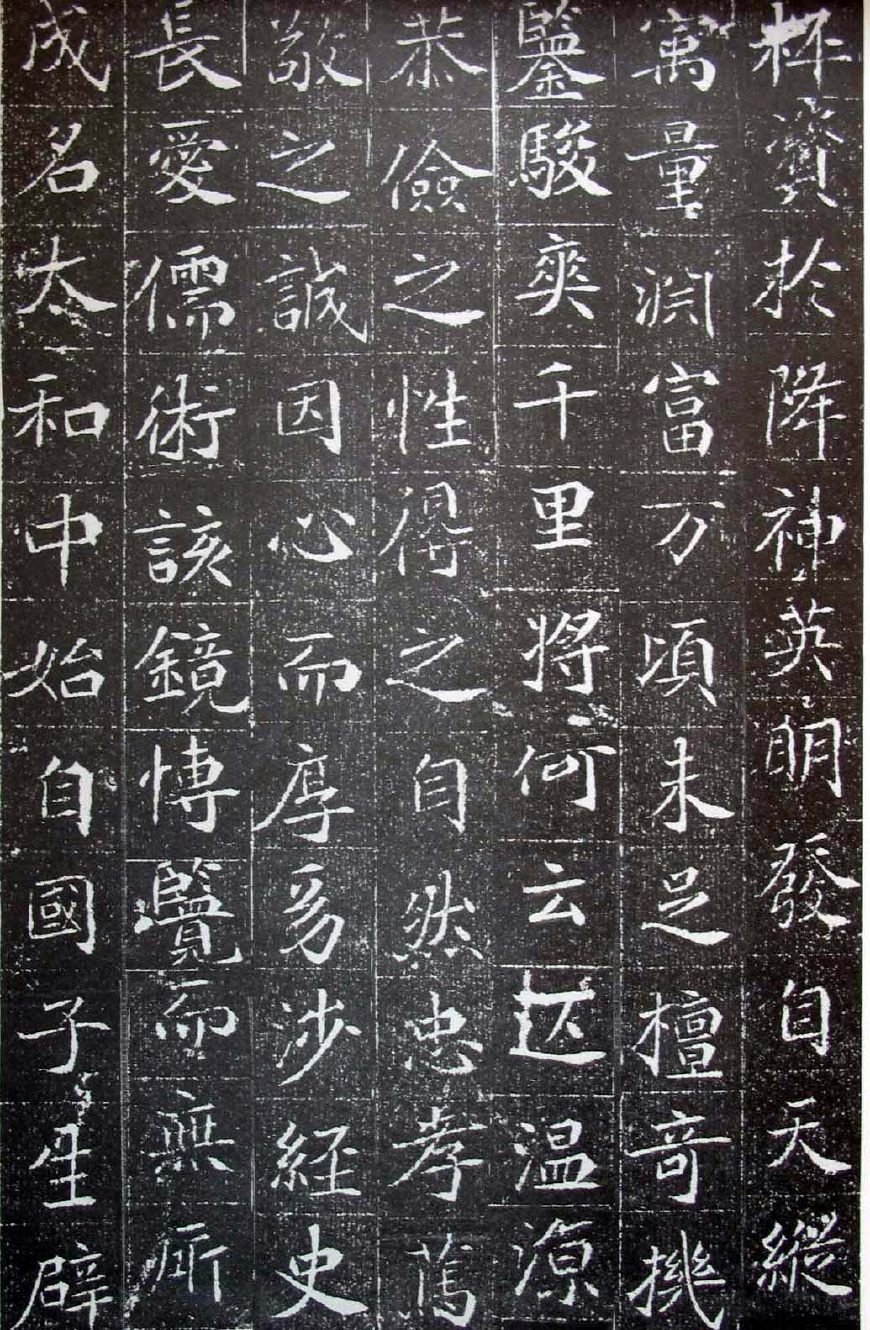 杯資於降神英明發自天縱
寓量淵富万頃未足檀奇機
鑒駿爽千里將何云迖温源
恭儉之性得之自然忠孝篤
敬之誠因心而厚多涉經史
長愛儒術該鏡博覽而無所
成名太和中始自國子生辟